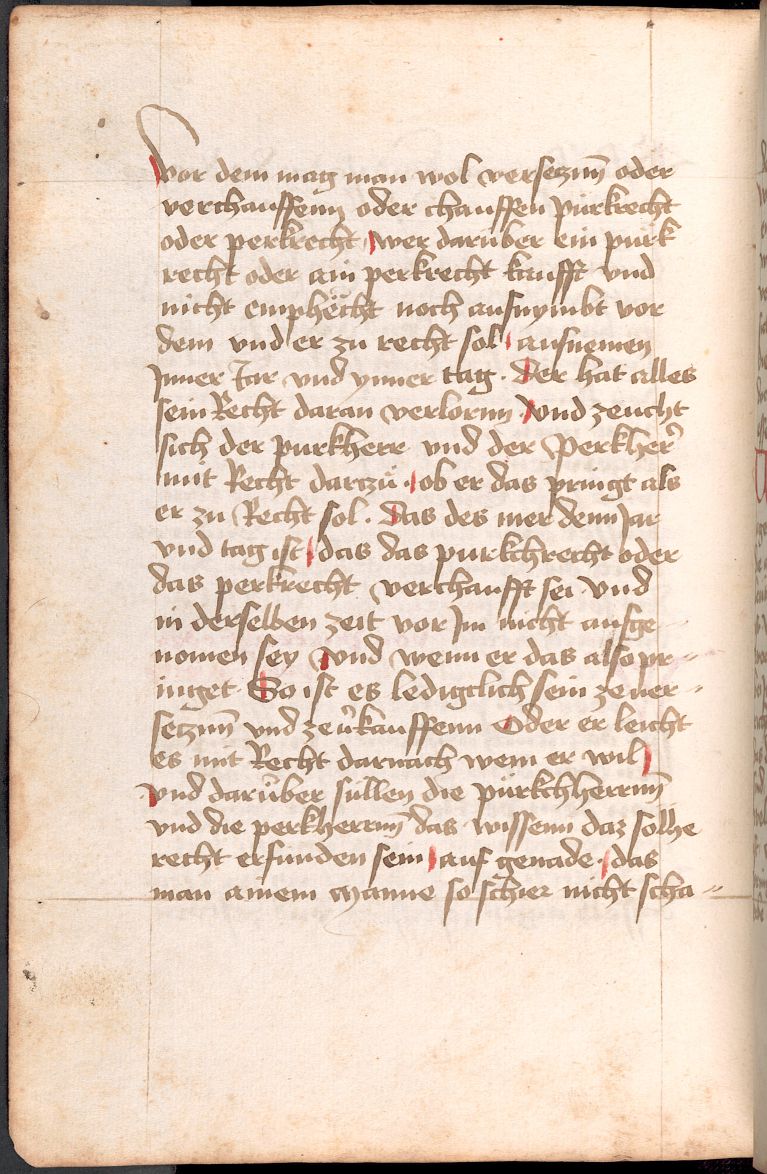 Vor dem mag man wol versetzn̄ oder
verchauffenn oder chauffen purkrecht
oder perkrecht wer darüber ein purk
recht oder ain perkrecht kaufft vnd
nicht emphëcht noch aufnymbt vor
dem vnd er zu recht sol aufnemen
Inner Jar vnd ynner tag · Der hat alles
sein Recht daran verlornn vnd zeucht
sich der purkherr vnd der Perkher
mit Recht darczü · ob er das pringt als
er zu Recht sol · Das des mer denn Jar
vnd tag ist das das purkchrecht oder
das perkrecht verchaufft sei · vnd
in derselben zeit vor Im nicht aufge
nomen sey vnd wenn er das also pr-
inget · So ist es ledigclich sein ze ver-
setznn̄ vnd ze v̈kauffenn Oder er leicht
es mit Recht darnach wem er wil
vnd darüber süllen die pürkchherrnn̄
vnd die perkherrnn̄ das wissenn daz solhe
recht erfunden sein auf genade · das
man ainem Manne so schier nicht scha-